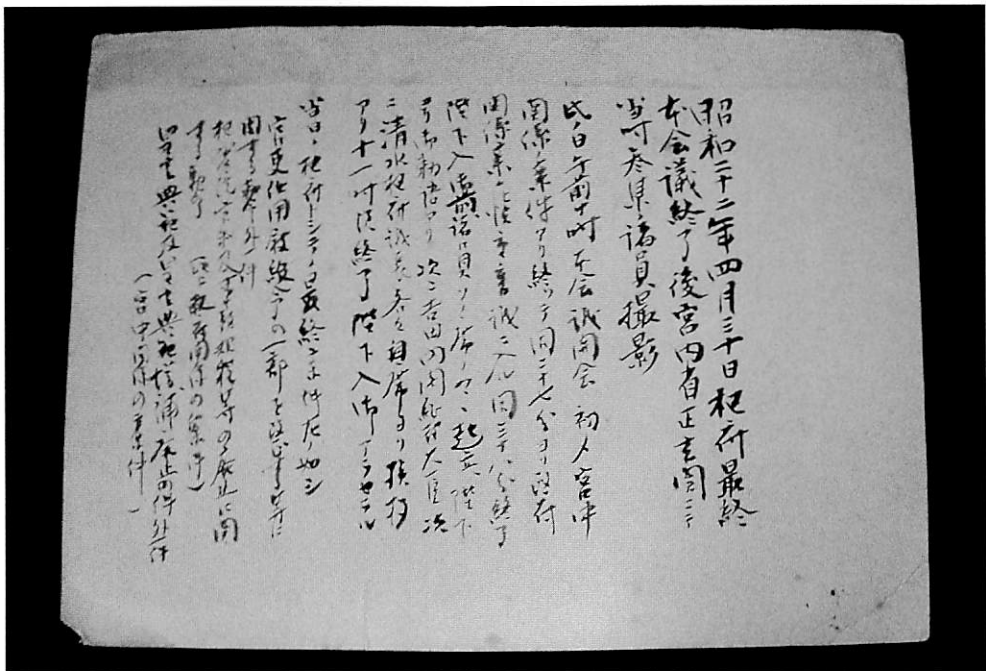 昭和二十二年四月三十日枢府最終
本会議終了後宮内省正玄関ニテ
当時参集諸員撮影
此ノ日午前十時本会議開会初メ宮中
関係ノ案件アリ終ツテ同二十七分ヨリ政府
関係案ノ審議ニ入ル同三十八分終了
陛下入御前諸員ソノ席ノママ起立陛下
ヨリ御勅語アリ次ニ吉田内閣総理大臣次
ニ清水枢府議長各々自席ヨリ挨拶
アリ十一時頃終了陛下入御アラセラル
当日ノ枢府トシテノ最終ノ案件左ノ如シ
官吏任用叙級令の一部を改正
関する勅令外一件
枢密院官制及事務規程等の廃止に関
する勅令 (以上政府関係の案件)
皇室典範及皇室典範増補廃止の件外一件
(宮中関係の案件)